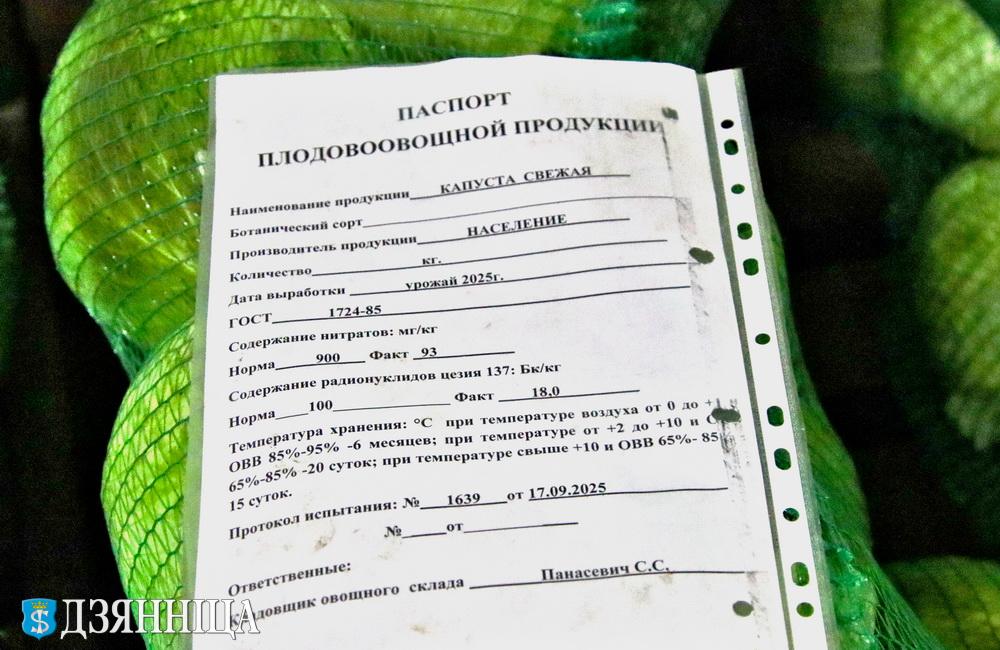 ПАСПОРТ
ПЛОДОВООВОЩНОЙ ПРОДУКЦИИ
Наименование продукции КАПУСТА СВЕЖАЯ
Ботанический сорт
Производитель продукции НАСЕЛЕНИЕ
Количество кг.
Дата выработки урожай 2025г.
ГОСТ 1724-85
Содержание нитратов: мг/кг
Норма 900 Факт 93
Содержание радионуклидов цезия 137: Бк/кг
Норма 100 Факт 18,0
Температура хранения: °С при температуре воздуха от 0 до +1
ОВВ 85%-95% -6 месяцев; при температуре от +2 до +10 и
65%-85% -20 суток; при температуре свыше +10 и ОВВ 65%- 85%
15 суток.
Протокол испытания: № 1639 от 17.09.2025
№ от
Ответственные:
Кладовщик овощного склада Панасевич С.С.
ДЗЯННІЦА